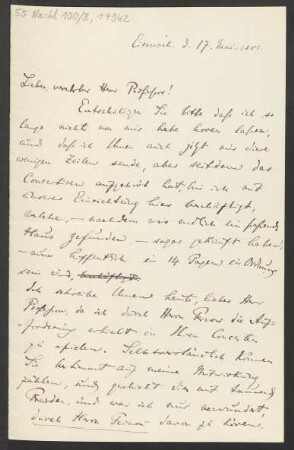 55 Nachl 100/B, 17942
d. 17. Mai.
Lieber, verehrter Herr Professor!
Entschuldigen Sie bitte daß ich so
lange nicht von mir habe hören lassen,
und daß ich Ihnen auch jetzt nur diese
wenigen Zeilen sende, aber seitdem das
Concertiren aufgehört hat bin ich mit
unserer Einrichtung hier beschäftigt,
welche, – nachdem wir endlich ein passendes
Haus gefunden – sogar gekauft haben,
– nun hoffentlich in 14 Tagen in Ordnung
sein wird,
Ich schreibe Ihnen heute, lieber Herr
Professor, da ich durch Herrn die Auf-
forderung erhielt in Ihren Concerten
zu spielen. Selbstverständlich können
Sie bestimmt auf meine Mitwirkung
zählen, und geschieht dies mit tausend
Freuden, und war ich nur verwundert,
durch Herrn davon zu hören,